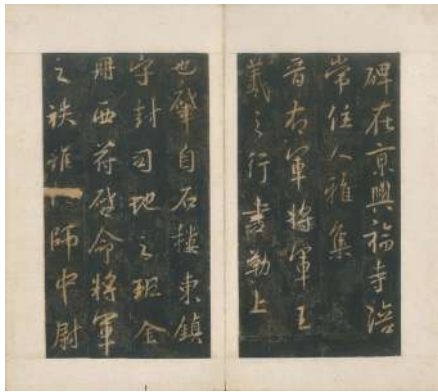 碑在京興福寺陪
常住人雅集
晉右軍將軍王
羲之行書勒上
也肇自石樓東鎮
字封司地之班金
冊西符啓命將軍
之秩 師中尉